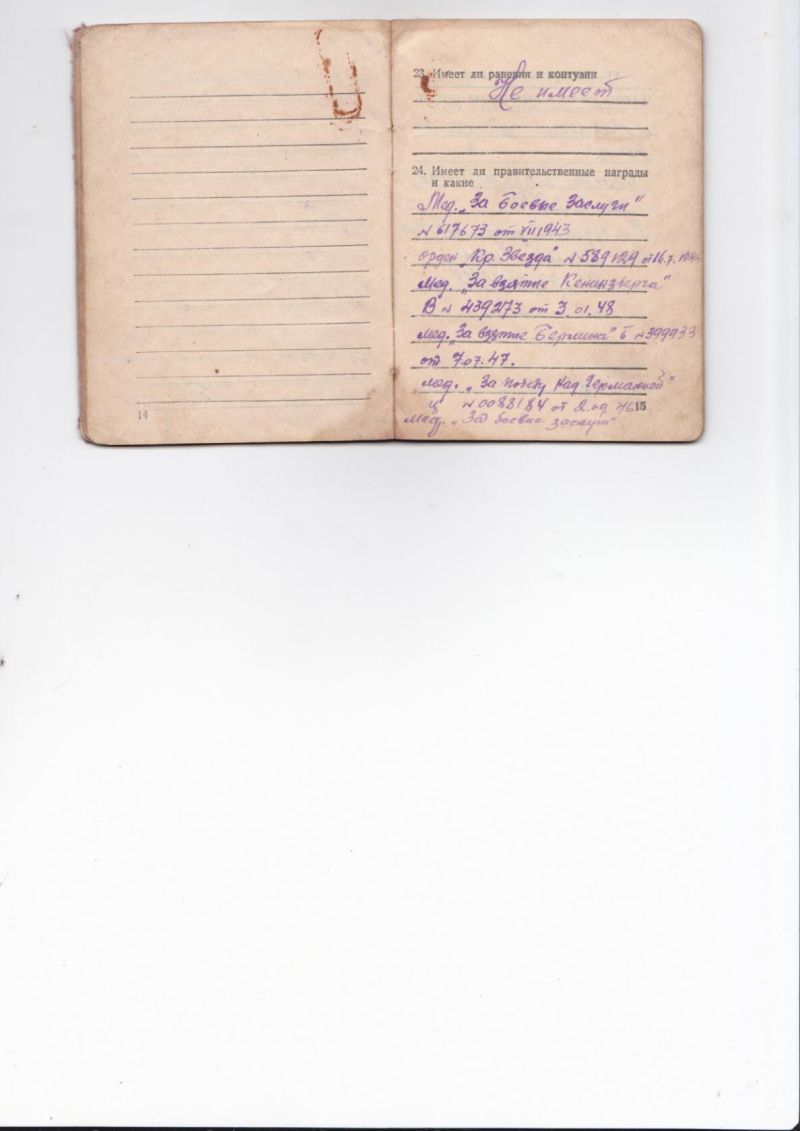 14
23. Имеет ли ранения и контузии
Не имеет
24. Имеет ли правительственные награды
и какие
Мед. „За боевые Заслуги"
№ 617673 от VII 1943
орден „Кр. Звезда" № 589129 от 16.7.
Мед. „За взятие Кенинзберга"
В № 439273 от 3.01.48
мед. „За взятие Берлина" Б № 399933
от 7.07.47.
мед. „За победу над Германией"
№ 0088184 от 2.
15
Мед. „За боевые заслуги"